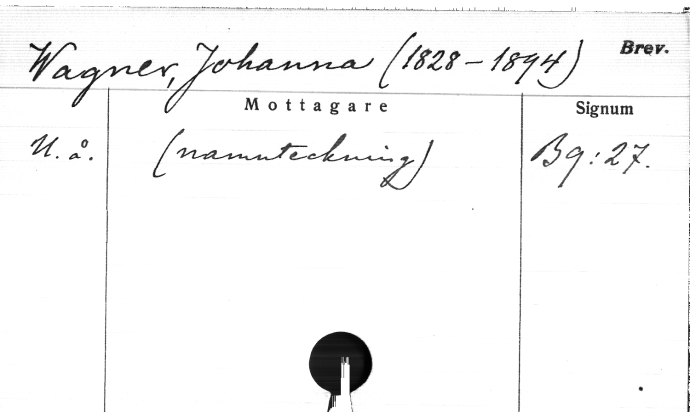 Wagner, Johanna (1828-1894) Brev.
Mottagare Signum
U. å. (namnteckning) Bq:27.